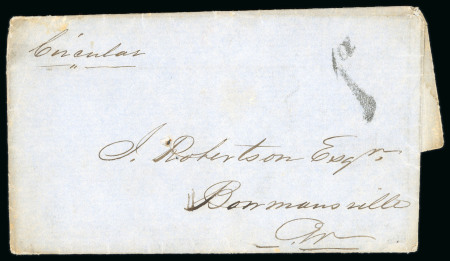 Circular
J. Robertson Esqr.
Bowmansville